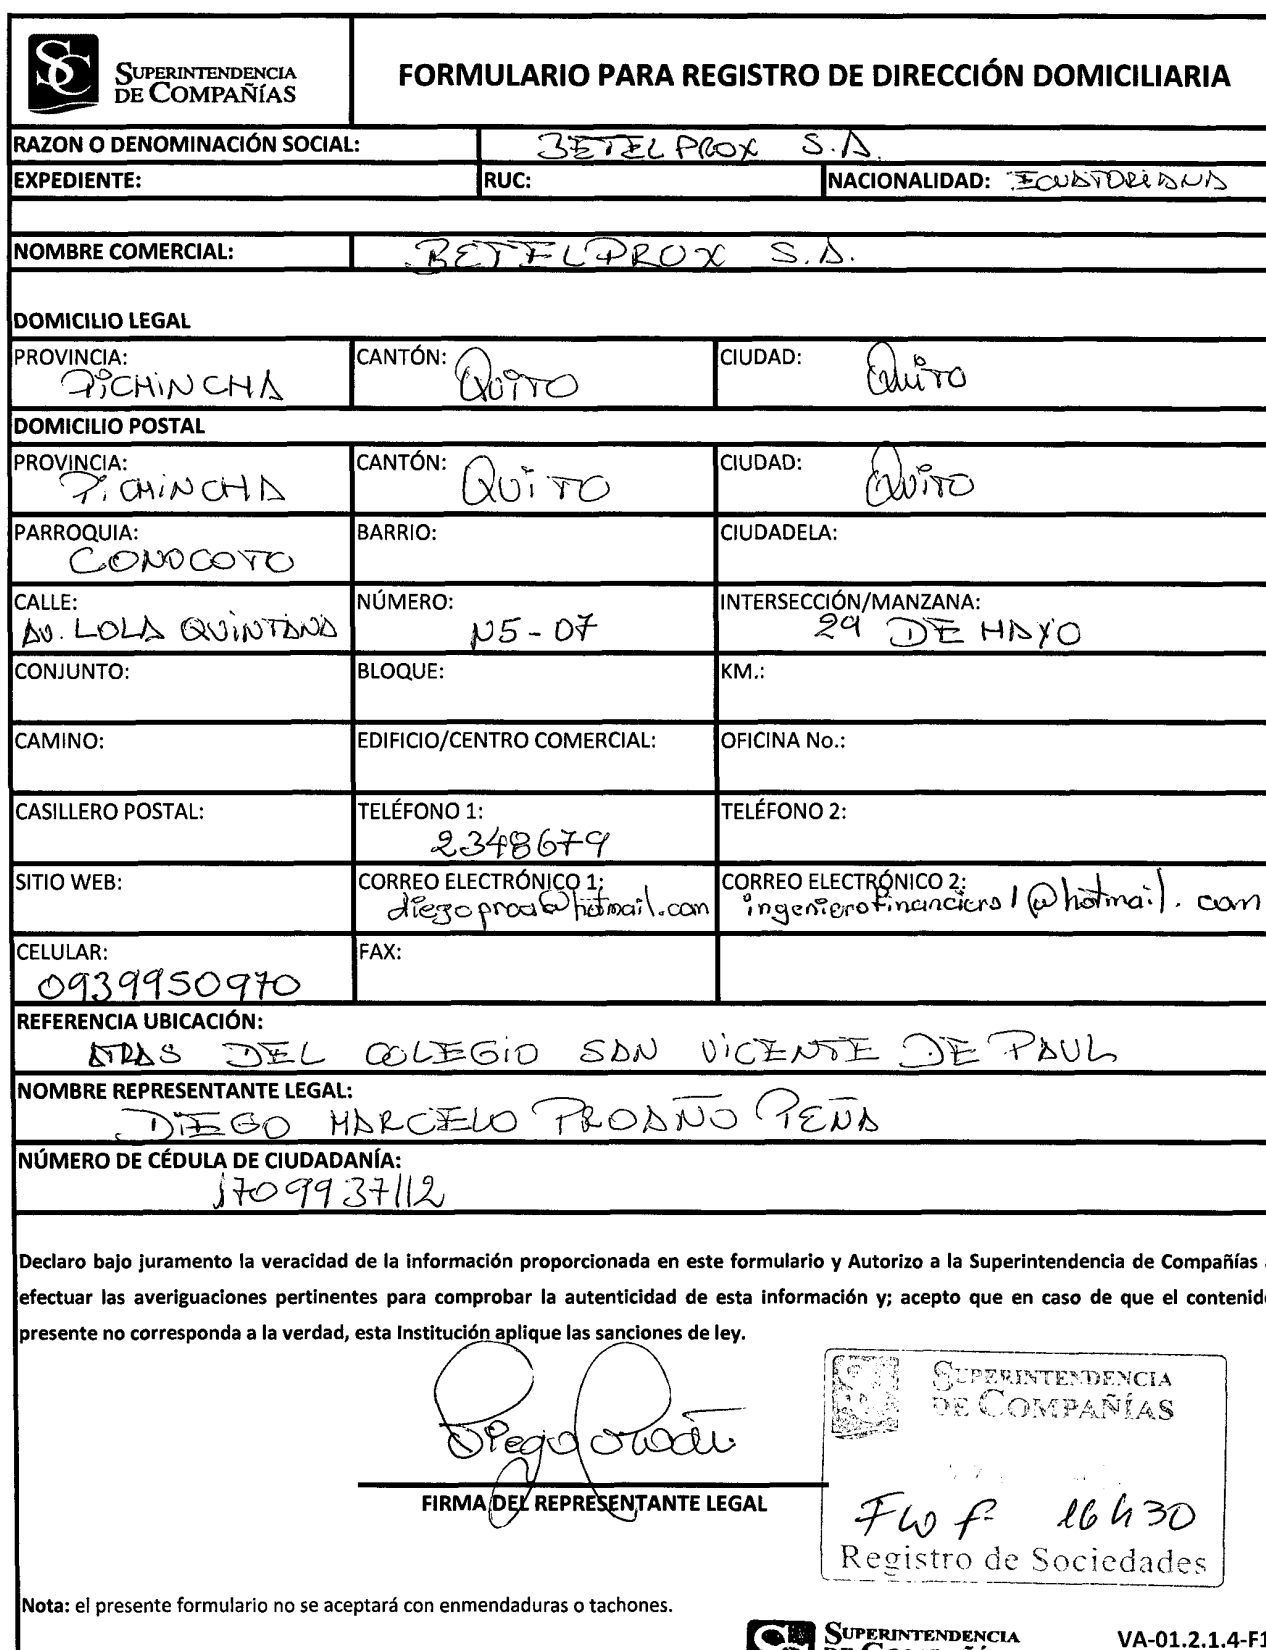 SUPERINTENDENCIA
DE COMPAÑÍAS
FORMULARIO PARA REGISTRO DE DIRECCIÓN DOMICILIARIA
RAZON O DENOMINACIÓN SOCIAL: BETELPROX S.A.
EXPEDIENTE: RUC: NACIONALIDAD: ECUATORIANA
NOMBRE COMERCIAL: BETELPROX S.A.
DOMICILIO LEGAL
PROVINCIA: CANTÓN: CIUDAD:
PICHINCHA QUITO QUITO
DOMICILIO POSTAL
PROVINCIA: CANTÓN: CIUDAD:
PICHINCHA QUITO QUITO
PARROQUIA: BARRIO: CIUDADELA:
CONOCOTO
CALLE: NÚMERO: INTERSECCIÓN/MANZANA:
AV. LOLA QUINTANA N5-07 29 DE MAYO
CONJUNTO: BLOQUE: KM.:
CAMINO: EDIFICIO/CENTRO COMERCIAL: OFICINA No.:
CASILLERO POSTAL: TELÉFONO 1: TELÉFONO 2:
2348679
SITIO WEB: CORREO ELECTRÓNICO 1: CORREO ELECTRÓNICO 2:
diegoproa@hotmail.com ingenierofinanciero1@hotmail.com
CELULAR: FAX:
0939950970
REFERENCIA UBICACIÓN:
ATRAS DEL COLEGIO SAN VICENTE DE PAUL
NOMBRE REPRESENTANTE LEGAL:
DIEGO MARCELO PROAÑO PEÑA
NÚMERO DE CÉDULA DE CIUDADANÍA:
1709937112
Declaro bajo juramento la veracidad de la información proporcionada en este formulario y Autorizo a la Superintendencia de Compañías a
efectuar las averiguaciones pertinentes para comprobar la autenticidad de esta información y; acepto que en caso de que el contenido
presente no corresponda a la verdad, esta Institución aplique las sanciones de ley.
SUPERINTENDENCIA
DE COMPAÑÍAS
Diego
FIRMA DEL REPRESENTANTE LEGAL
16h30
Registro de Sociedades
Nota: el presente formulario no se aceptará con enmendaduras o tachones.
SUPERINTENDENCIA
VA-01.2.1.4-F1